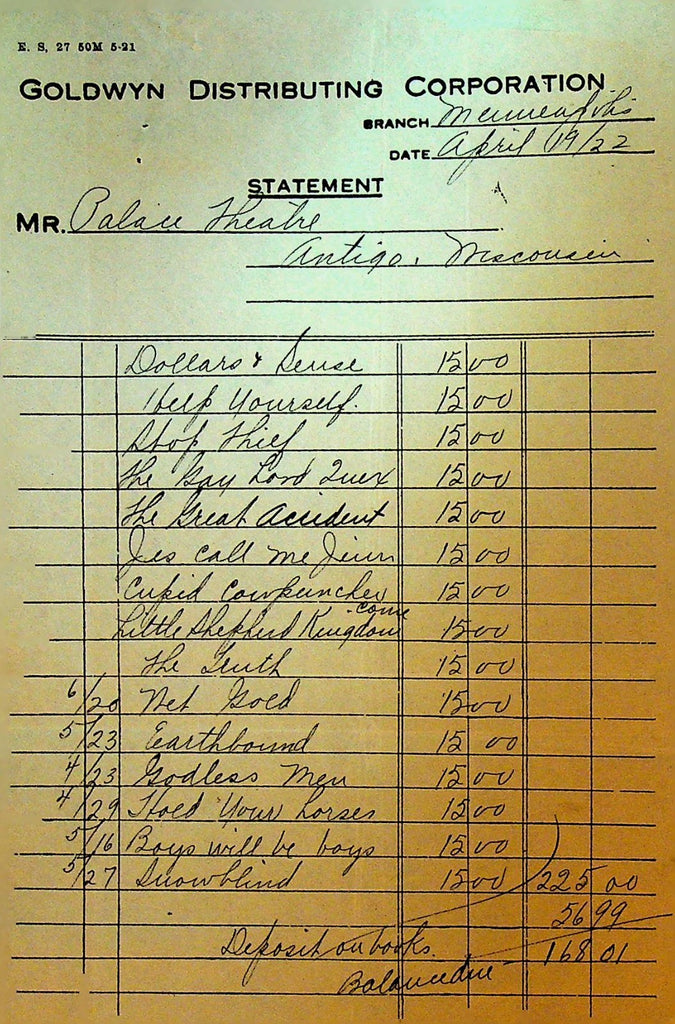 E. S. 27 50M 5-21
GOLDWYN DISTRIBUTING CORPORATION
BRANCH Minneapolis
DATE April 19/22
STATEMENT
MR. Palace Theatre
Antigo, Wisconsin
Dollars & Sense 15 00
Help Yourself. 15 00
Stop Thief 15 00
The Gay Lord Quex 15 00
The Great Accident 15 00
Jes Call me Jim 15 00
Cupid Cowpuncher 15 00
Little Shepherd Kingdom come 15 00
The Tenth 15 00
6/20 Net Gold 15 00
5/23 Earthbound 15 00
4/23 Godless Men 15 00
4/29 Hold Your horses 15 00
5/16 Boys will be boys 15 00
5/27 Snowblind 15 00 225 00
56 99
Deposit on books. 168 01
Balance due -